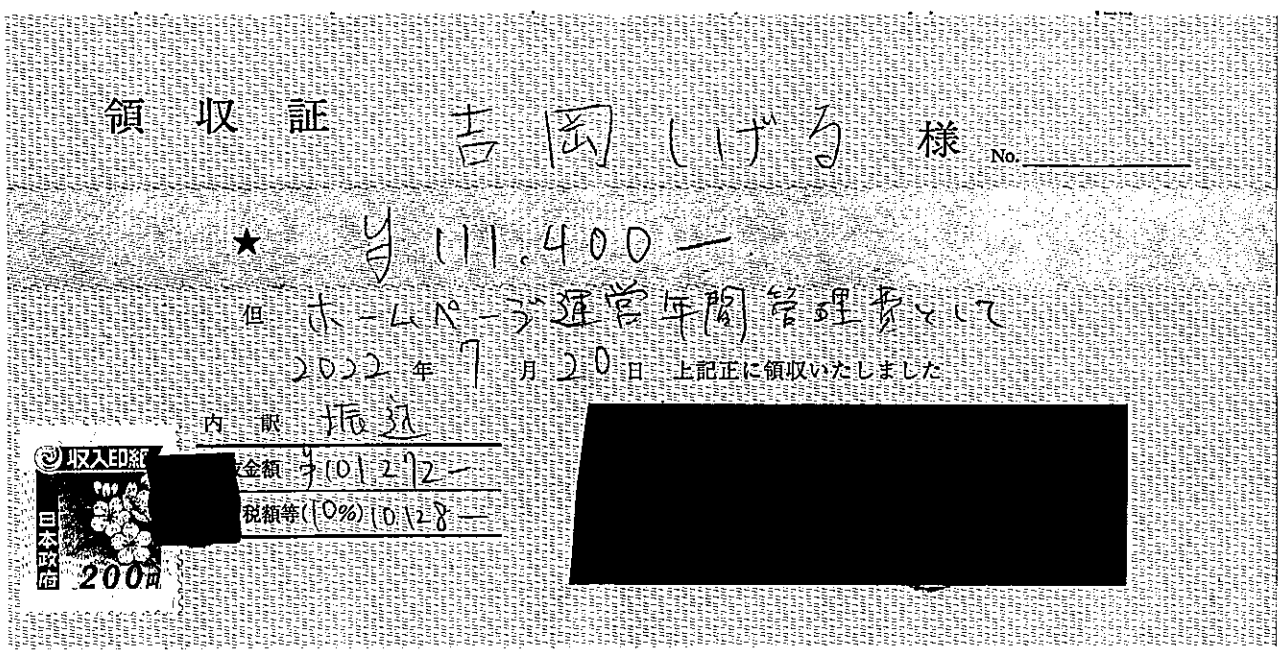 領収証 吉岡しげる 様 No.
★ ¥111,400―
但 ホームページ運営年間管理費として
2022年7月20日 上記正に領収いたしました
内訳 振込
金額 ¥101,272―
税額等(10%) 10,128―
収入印紙
日本政府
200円